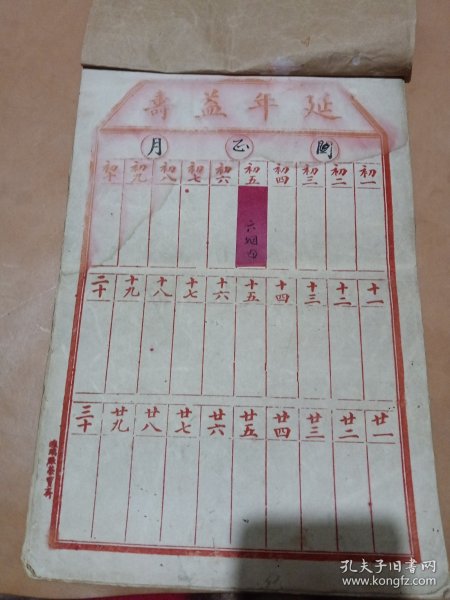 延年益壽
正月
初一 初二 初三 初四 初五 初六 初七 初八 初九 初十
十一 十二 十三 十四 十五 十六 十七 十八 十九 二十
廿一 廿二 廿三 廿四 廿五 廿六 廿七 廿八 廿九 三十
孔夫子旧书网
www.kongfz.com